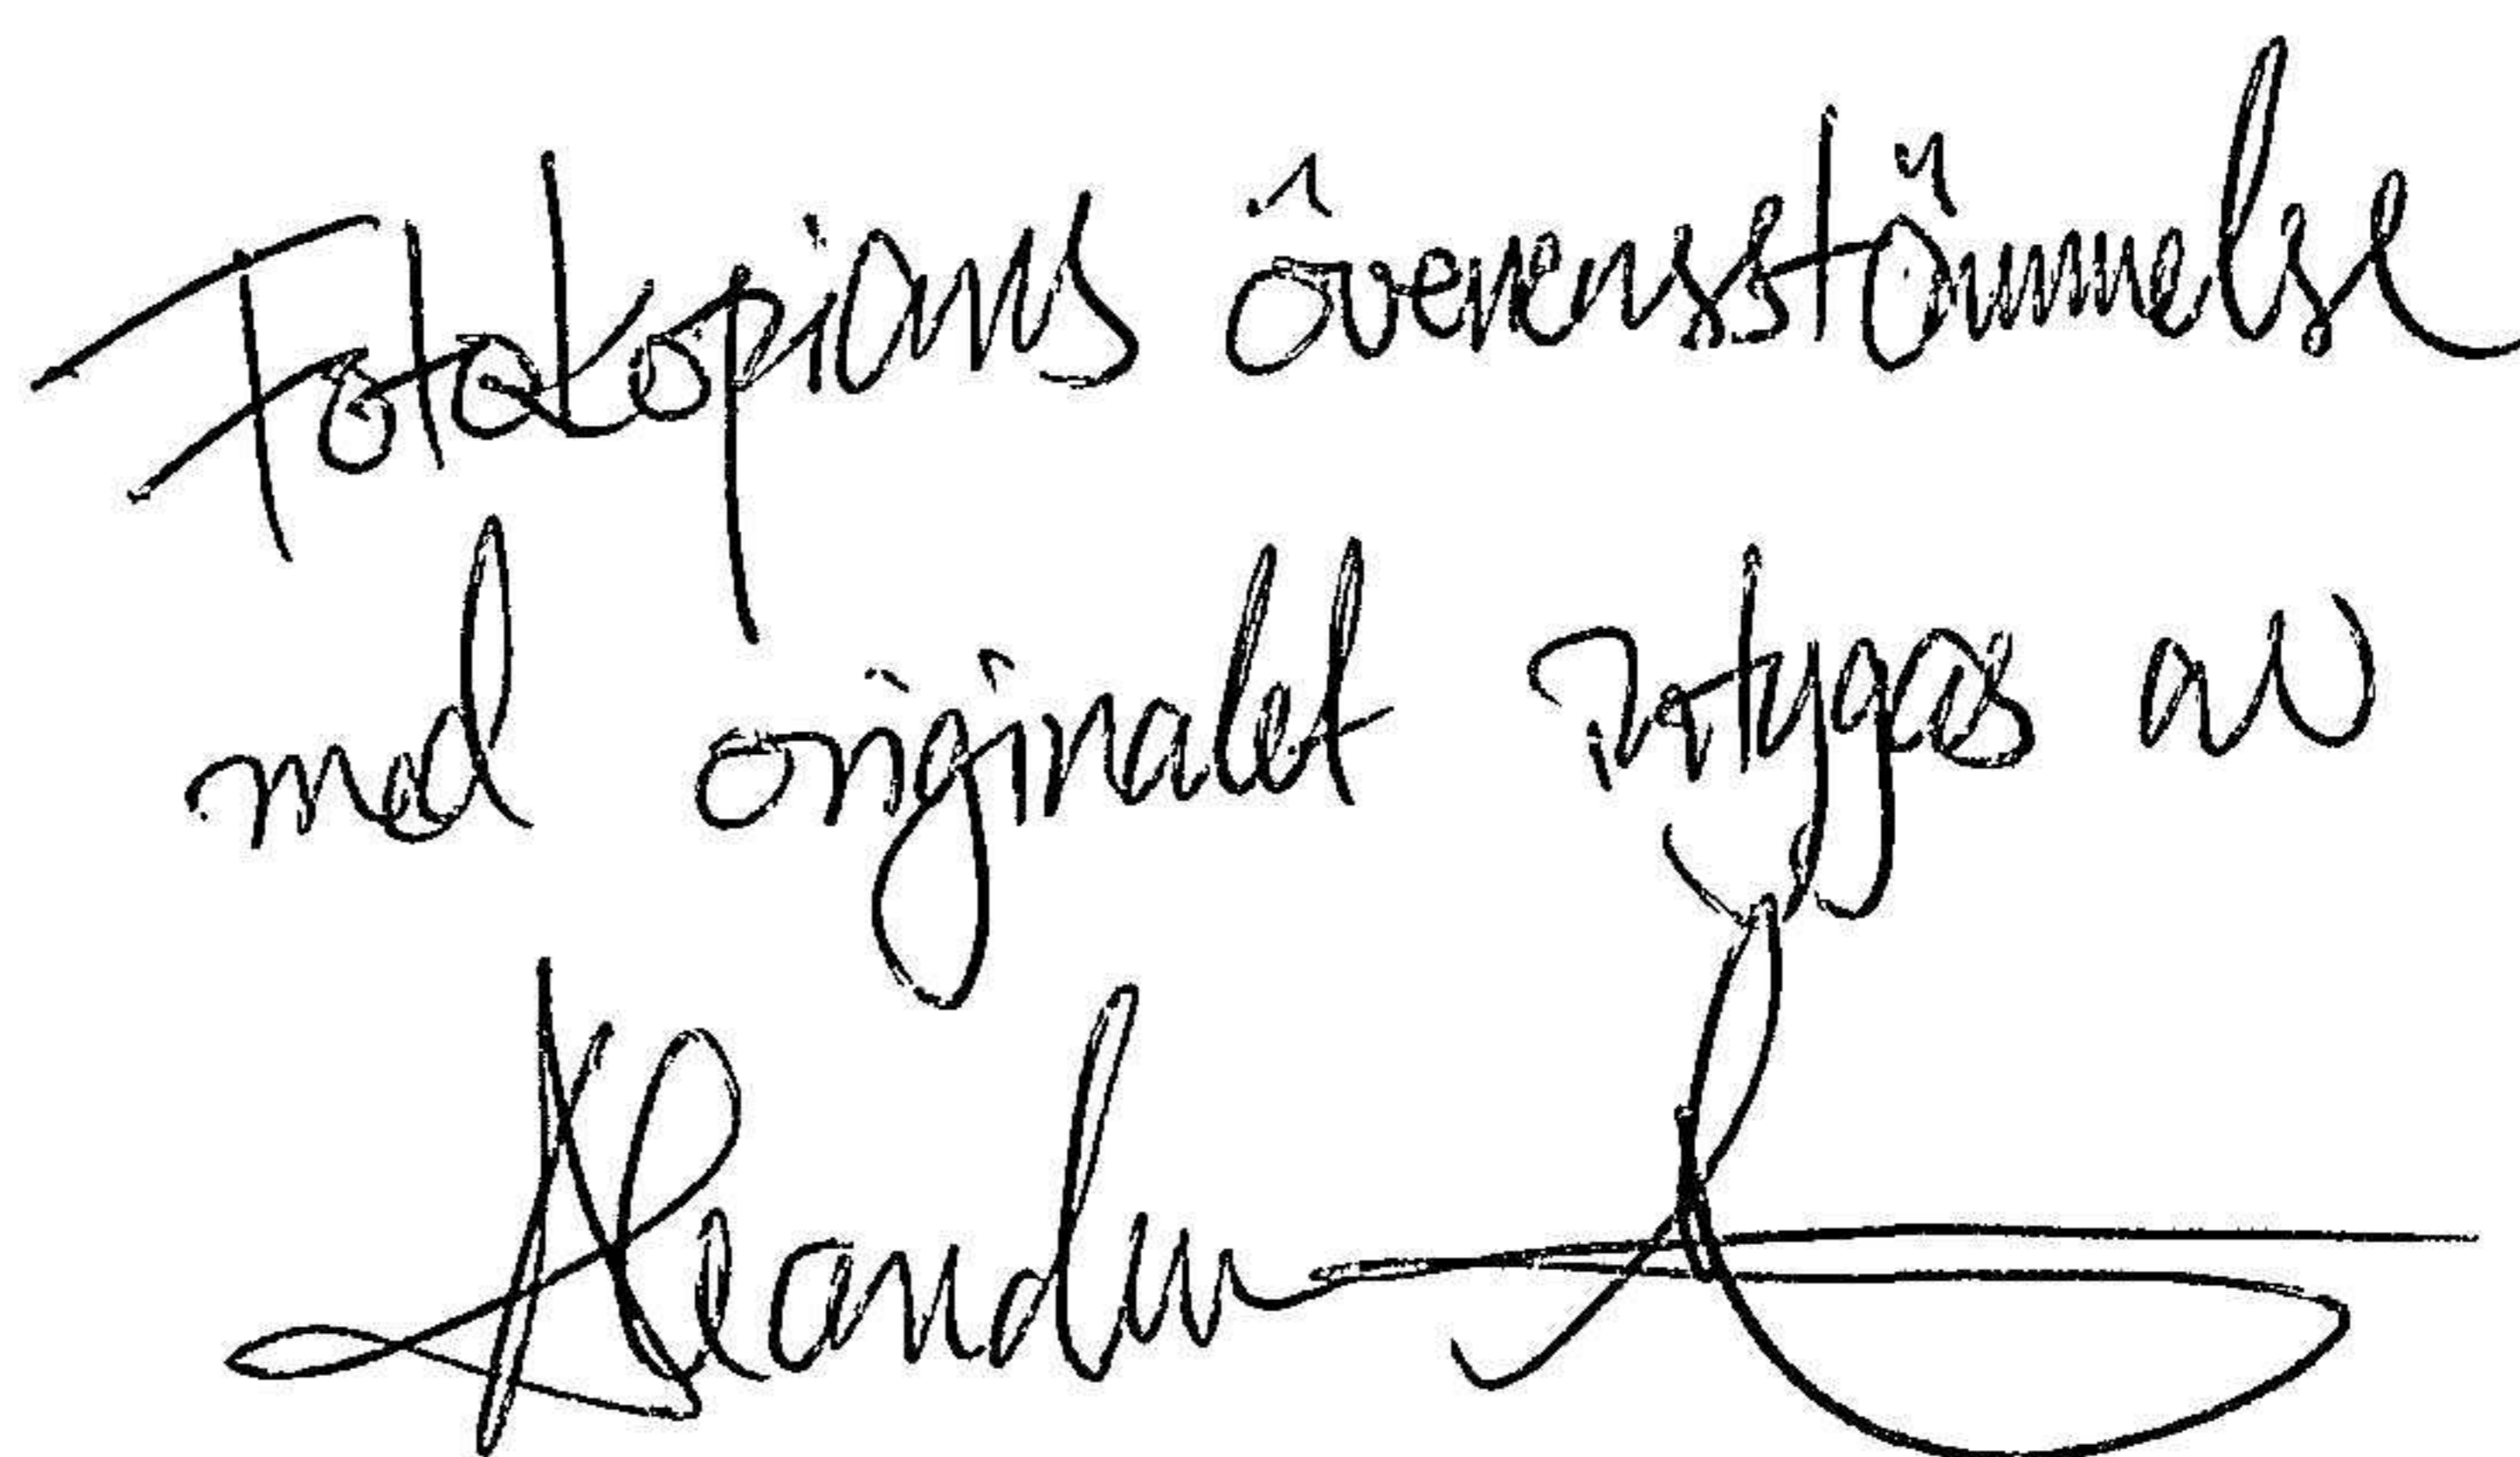 Fotokopians överensstömmelse
med originalet intygas av